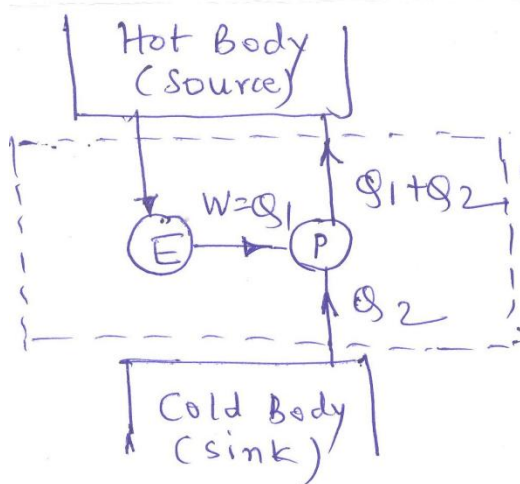 Hot Body
(Source)
W=Q1
Q1+Q2
E
P
Q2
Cold Body
(Sink)